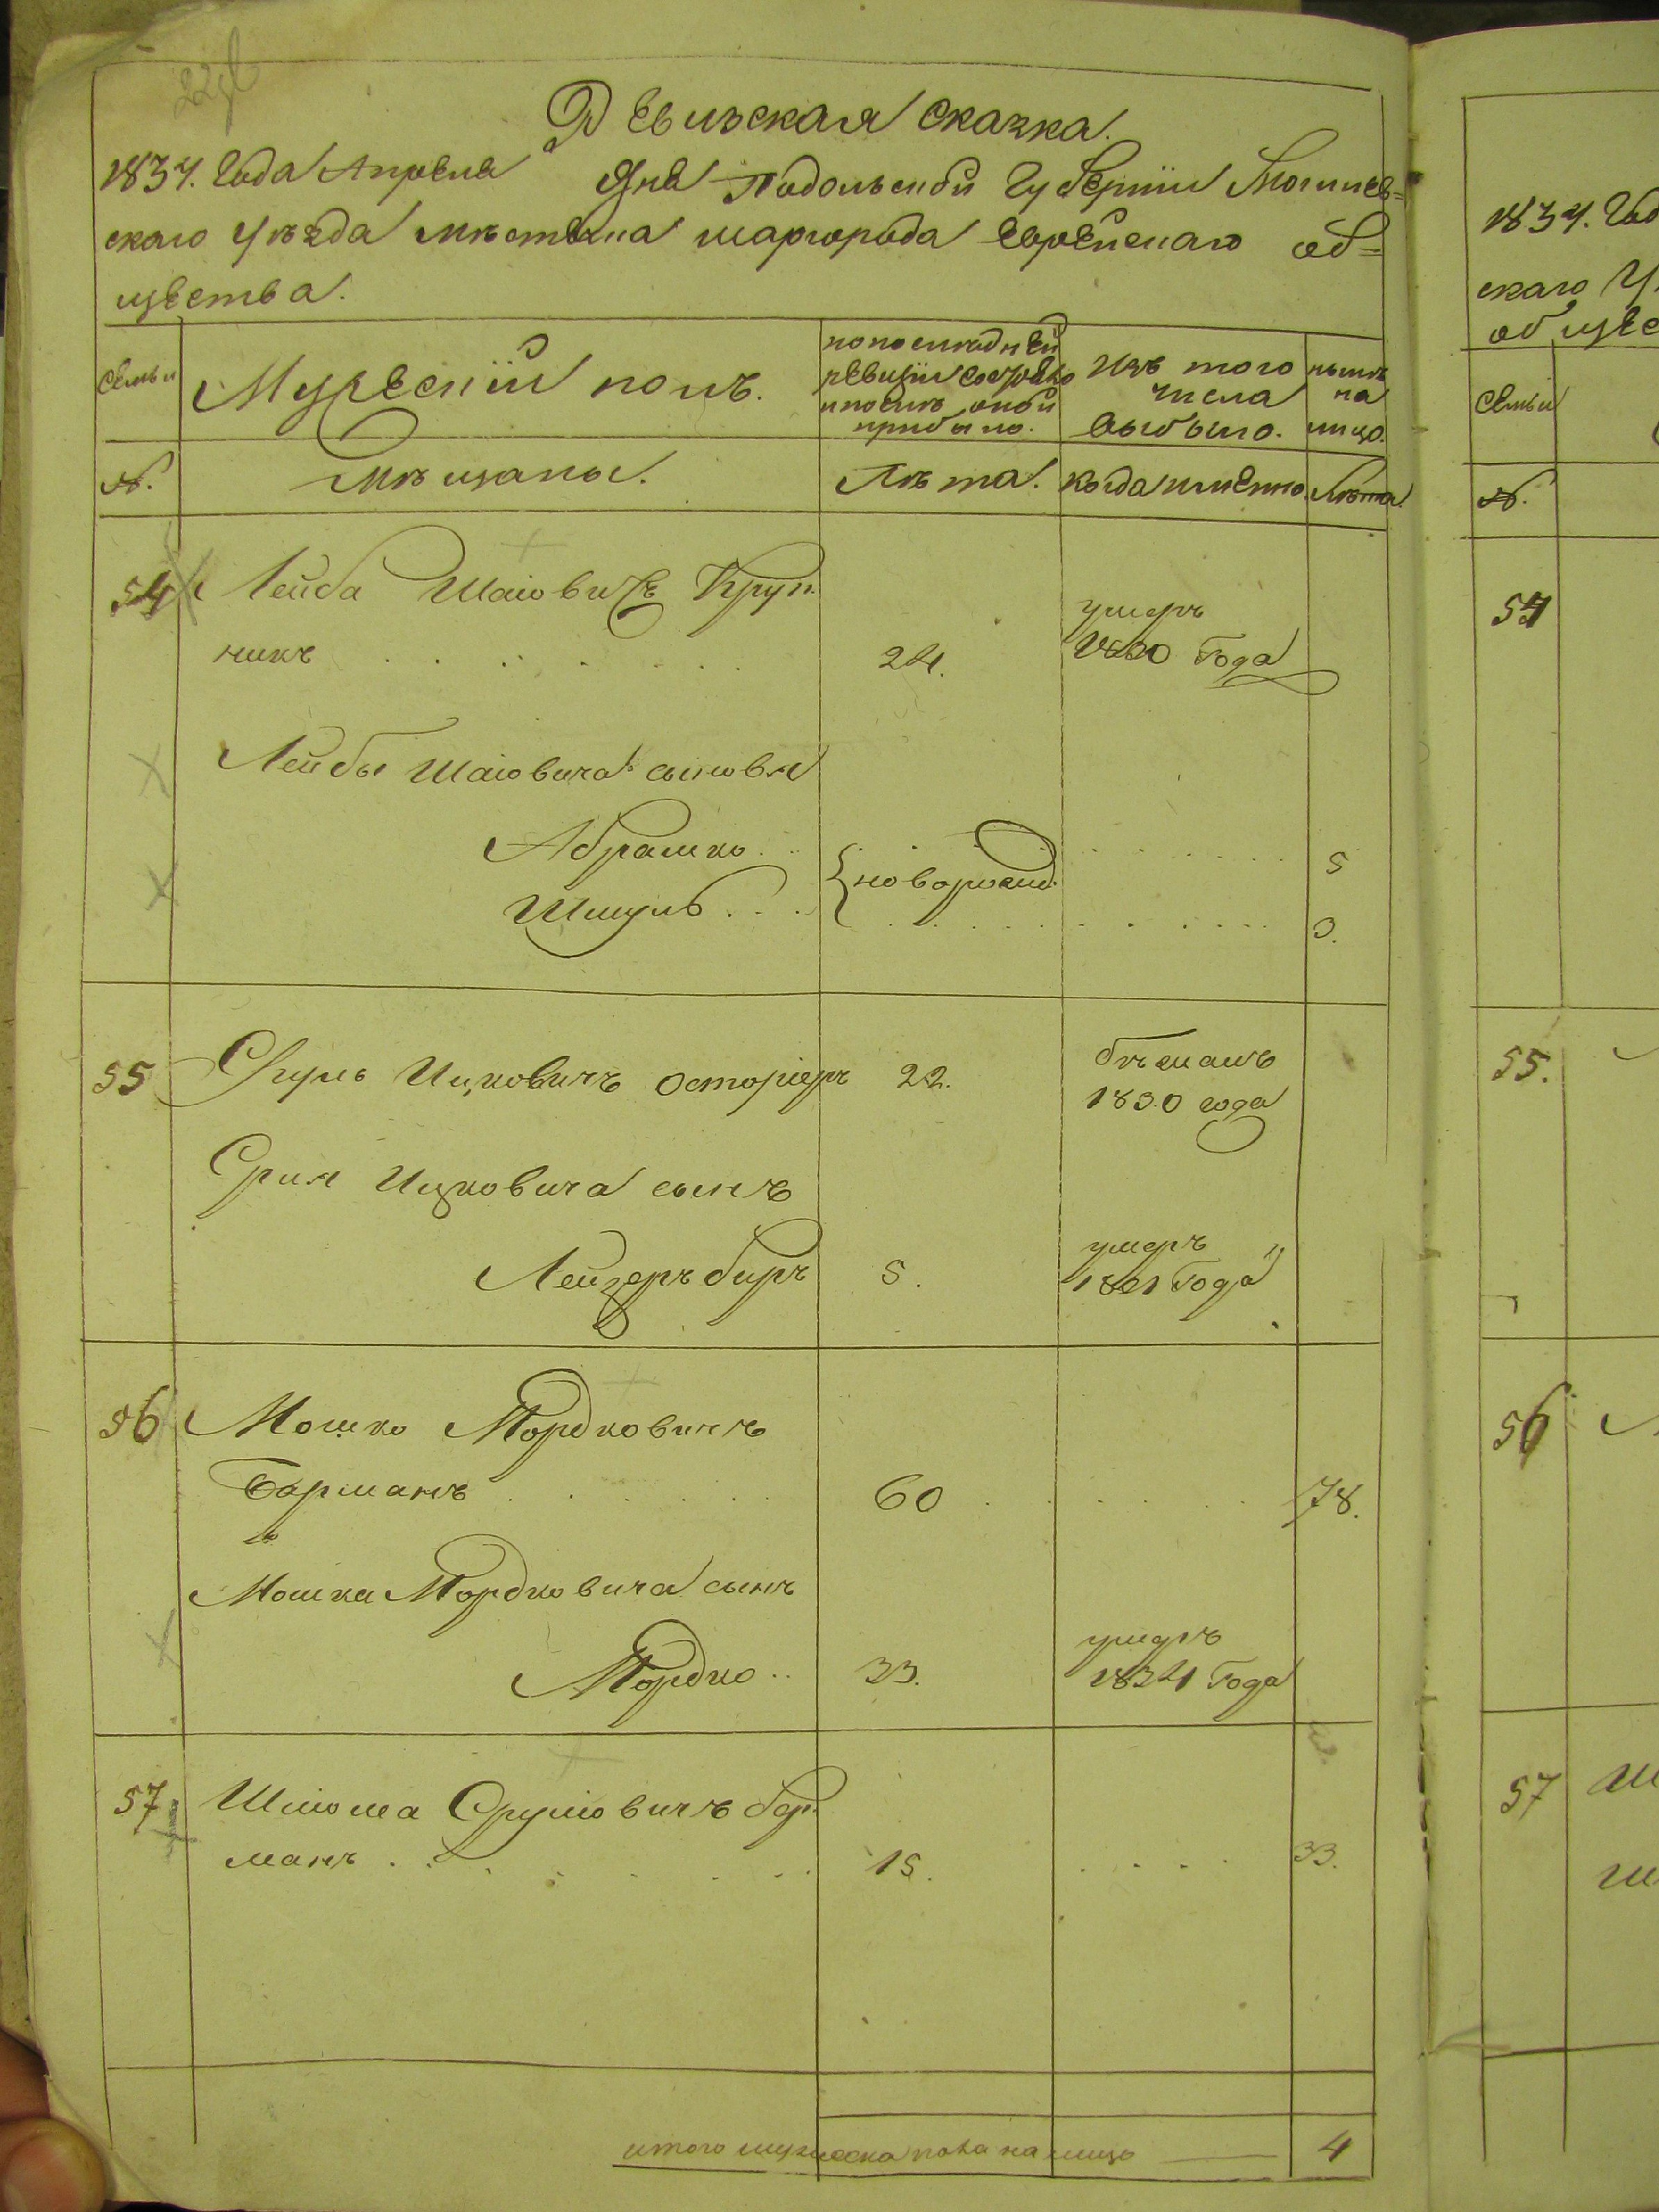 Ревизская сказка.
1834. года Апреля дня Подольской Губернии Могилев=
скаго Уезда местечка шаргорода Еврейскаго об=
щества.
Семьи
Мужеский полъ.
по последней
ревизии состояло
и после оной
прибыло.
Изъ того
числа
выбыло.
ныне
на
лицо.
№.
Мещаны.
Лета.
когда именно.
Лета.
54 Лейба Шаiовичъ Круп
никъ 24. умеръ
1830 Года
Лейбы Шаiовича сыновья
Абрашко 5
{новорожд.
Шмуль 3.
55 Сруль Ицковичъ 22. бежалъ
1830 года
Сруля Ицковича сынъ
Лейзеръ беръ 5. умеръ
1821 Года
56 Мошко Мордковичъ
Барманъ 60 78.
Мошка Мордковича сынъ
Мордко 33. умеръ
1824 Года
57 Шлiома Срулiовичъ бар
манъ 15. 33.
итого мужеска пола на лицо 4
1834. Год
скаго У
общес
Семьи
№.
54
55.
56
57